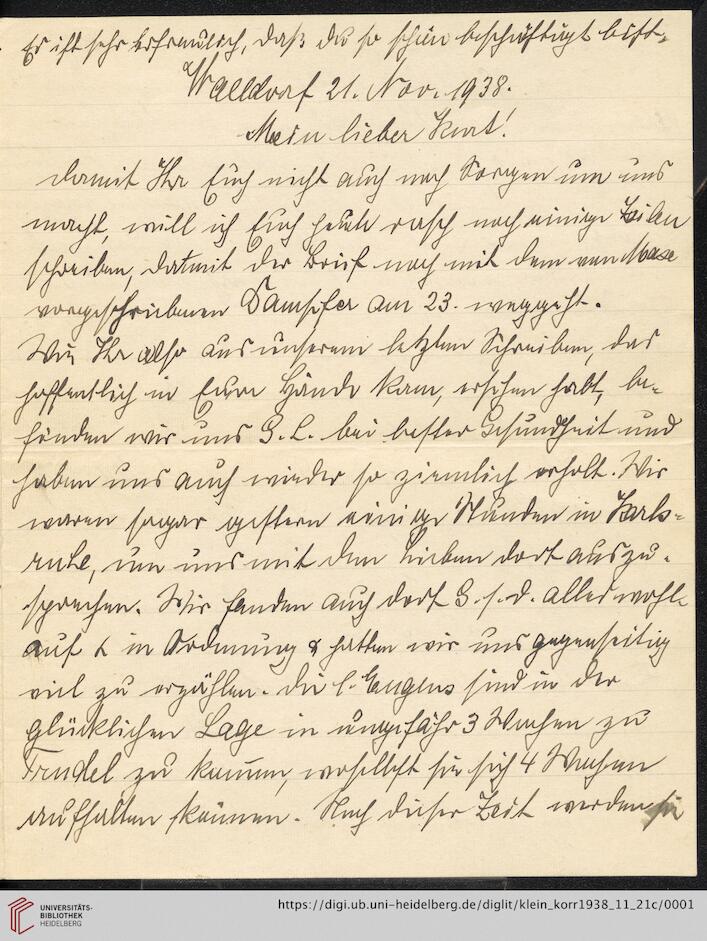 Es ist sehr erfreulich, daß du so schön beschäftigt bist.
Walldorf 21. Nov. 1938.
Mein lieber Kurt!
Damit Ihr Euch nicht auch noch Sorgen um uns
macht, will ich Euch heute rasch noch einige Zeilen
schreiben, damit der Brief noch mit dem von
vorgeschriebenen Dampfer am 23. weggeht.
Wie Ihr also aus unserem letzten Schreiben, das
hoffentlich in Eure Hände kam, ersehen habt, be-
finden wir uns G. L. bei bester Gesundheit und
haben uns auch wieder so ziemlich erholt. Wir
waren sogar gestern einige Stunden in Karls-
ruhe, um uns mit den Lieben dort auszu-
sprechen. Wir fanden auch dort G. s. d. alles wohl-
auf & in Ordnung & hatten wir uns gegenseitig
viel zu erzählen. Die l. Eugens sind in der
glücklichen Lage in ungefähr 3 Wochen zu
Trudel zu kommen, woselbst sie sich 4 Wochen
aufhalten können. Nach dieser Zeit werden sie
UNIVERSITÄTS-
BIBLIOTHEK
HEIDELBERG
https://digi.ub.uni-heidelberg.de/diglit/klein_korr1938_11_21c/0001